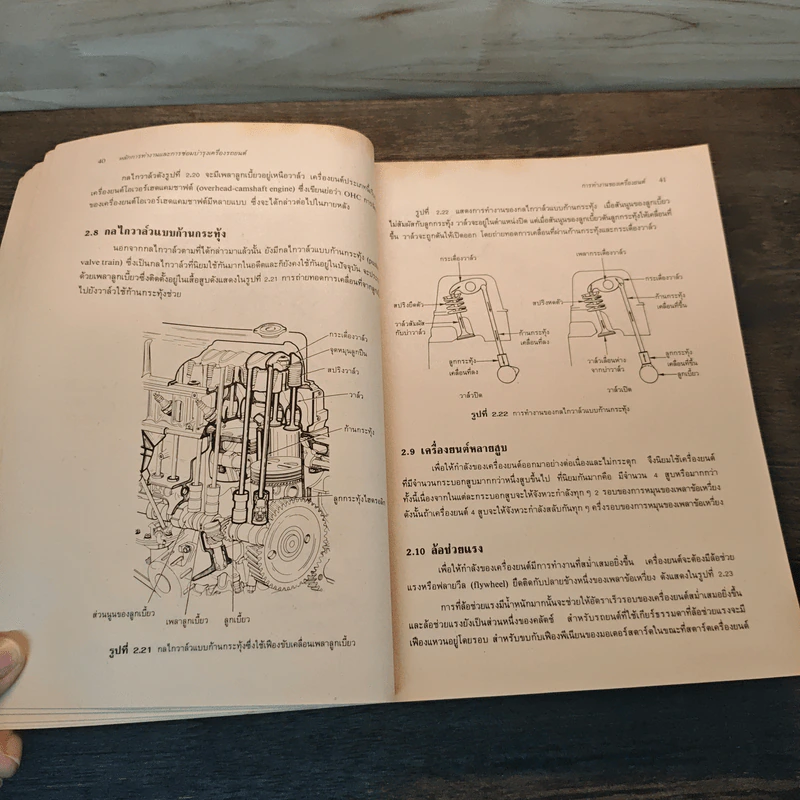 40 หลักการทำงานและการซ่อมบำรุงเครื่องรถยนต์
กลไกวาล์วดังรูปที่ 2.20 จะมีเพลาลูกเบี้ยวอยู่เหนือวาล์ว เครื่องยนต์ประเภทนี้
เครื่องยนต์โอเวอร์เฮดแคมชาฟต์ (overhead-camshaft engine) ซึ่งเขียนย่อว่า OHC
ของเครื่องยนต์โอเวอร์เฮดแคมชาฟต์มีหลายแบบ ซึ่งจะได้กล่าวต่อไปในภายหลัง
2.8 กลไกวาล์วแบบก้านกระทุ้ง
นอกจากกลไกวาล์วตามที่ได้กล่าวมาแล้วนั้น ยังมีกลไกวาล์วแบบก้านกระทุ้ง
valve train) ซึ่งเป็นกลไกวาล์วที่นิยมใช้กันมากในอดีตและก็ยังคงใช้กันอยู่ในปัจจุบัน
ด้วยเพลาลูกเบี้ยวซึ่งติดตั้งอยู่ในเสื้อสูบดังแสดงในรูปที่ 2.21 การถ่ายทอดการเคลื่อนที่จาก
ไปยังวาล์วใช้ก้านกระทุ้งช่วย
กระเดื่องวาล์ว
จุดหมุนลูกปืน
สปริงวาล์ว
วาล์ว
ก้านกระทุ้ง
ลูกกระทุ้งไฮดรอลิก
ส่วนนูนของลูกเบี้ยว
เพลาลูกเบี้ยว
ลูกเบี้ยว
รูปที่ 2.21 กลไกวาล์วแบบก้านกระทุ้งซึ่งใช้เฟืองขับเคลื่อนเพลาลูกเบี้ยว
การทำงานของเครื่องยนต์ 41
รูปที่ 2.22 แสดงการทำงานของกลไกวาล์วแบบก้านกระทุ้ง เมื่อสันนูนของลูกเบี้ยว
ไม่สัมผัสกับลูกกระทุ้ง วาล์วจะอยู่ในตำแหน่งปิด แต่เมื่อสันนูนของลูกเบี้ยวดันลูกกระทุ้งให้เคลื่อนที่
ขึ้น วาล์วจะถูกดันให้เปิดออก โดยถ่ายทอดการเคลื่อนที่ผ่านก้านกระทุ้งและกระเดื่องวาล์ว
กระเดื่องวาล์ว
สปริงยืดตัว
วาล์วสัมผัส
กับบ่าวาล์ว
ก้านกระทุ้ง
เคลื่อนที่ลง
ลูกกระทุ้ง
เคลื่อนที่ลง
วาล์วปิด
เพลากระเดื่องวาล์ว
กระเดื่องวาล์ว
สปริงหดตัว
ก้านกระทุ้ง
เคลื่อนที่ขึ้น
วาล์วเลื่อนห่าง
จากบ่าวาล์ว
ลูกกระทุ้ง
เคลื่อนที่ขึ้น
ลูกเบี้ยว
วาล์วเปิด
รูปที่ 2.22 การทำงานของกลไกวาล์วแบบก้านกระทุ้ง
2.9 เครื่องยนต์หลายสูบ
เพื่อให้กำลังของเครื่องยนต์ออกมาอย่างต่อเนื่องและไม่กระตุก จึงนิยมใช้เครื่องยนต์
ที่มีจำนวนกระบอกสูบมากกว่าหนึ่งสูบขึ้นไป ที่นิยมกันมากคือ มีจำนวน 4 สูบหรือมากกว่า
ทั้งนี้เนื่องจากในแต่ละกระบอกสูบจะให้จังหวะกำลังทุก ๆ 2 รอบของการหมุนของเพลาข้อเหวี่ยง
ดังนั้นถ้าเครื่องยนต์ 4 สูบจะให้จังหวะกำลังสลับกันทุก ๆ ครึ่งรอบของการหมุนของเพลาข้อเหวี่ยง
2.10 ล้อช่วยแรง
เพื่อให้กำลังของเครื่องยนต์มีการทำงานที่สม่ำเสมอยิ่งขึ้น เครื่องยนต์จะต้องมีล้อช่วย
แรงหรือฟลายวีล (flywheel) ยึดติดกับปลายข้างหนึ่งของเพลาข้อเหวี่ยง ดังแสดงในรูปที่ 2.23
การที่ล้อช่วยแรงมีน้ำหนักมากนั้นจะช่วยให้อัตราเร็วรอบของเครื่องยนต์สม่ำเสมอยิ่งขึ้น
และล้อช่วยแรงยังเป็นส่วนหนึ่งของคลัตช์ สำหรับรถยนต์ที่ใช้เกียร์ธรรมดาที่ล้อช่วยแรงจะมี
เฟืองแหวนอยู่โดยรอบ สำหรับขบกับเฟืองพีเนียนของมอเตอร์สตาร์ตในขณะที่สตาร์ตเครื่องยนต์